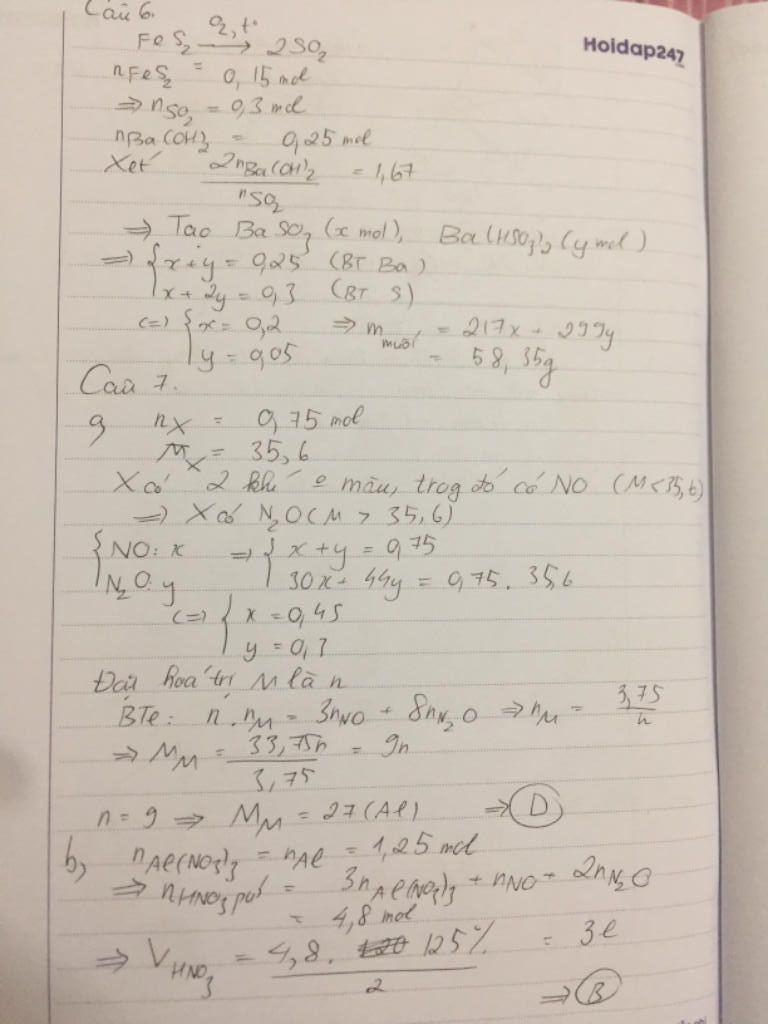 Câu 6.
Hoidap247
FeS₂ —O₂, t°→ 2SO₂
nFeS₂ = 0,15 mol
⇒ nSO₂ = 0,3 mol
nBa(OH)₂ = 0,25 mol
Xét 2nBa(OH)₂ / nSO₂ = 1,67
⇒ Tạo BaSO₃ (x mol), Ba(HSO₃)₂ (y mol)
⇒ { x + y = 0,25 (BT Ba)
x + 2y = 0,3 (BT S)
(=) { x = 0,2 ⇒ m muối = 217x + 299y
y = 0,05 = 58,35g
Câu 7.
a, nX = 0,75 mol
MX = 35,6
X có 2 khí o màu, trog đó có NO (M < 35,6)
⇒ X có N₂O (M > 35,6)
{ NO: x ⇒ { x + y = 0,75
N₂O: y 30x + 44y = 0,75 . 35,6
(=) { x = 0,45
y = 0,3
Đặt hoá trị M là n
BTe: n . nM = 3nNO + 8nN₂O ⇒ nM = 3,75 / n
⇒ MM = 33,75n / 3,75 = 9n
n = 9 ⇒ MM = 27 (Al) ⇒ D
b, nAl(NO₃)₃ = nAl = 1,25 mol
⇒ nHNO₃ pứ = 3nAl(NO₃)₃ + nNO + 2nN₂O
= 4,8 mol
⇒ VHNO₃ = 4,8 . 125% / 2 = 3l
⇒ B